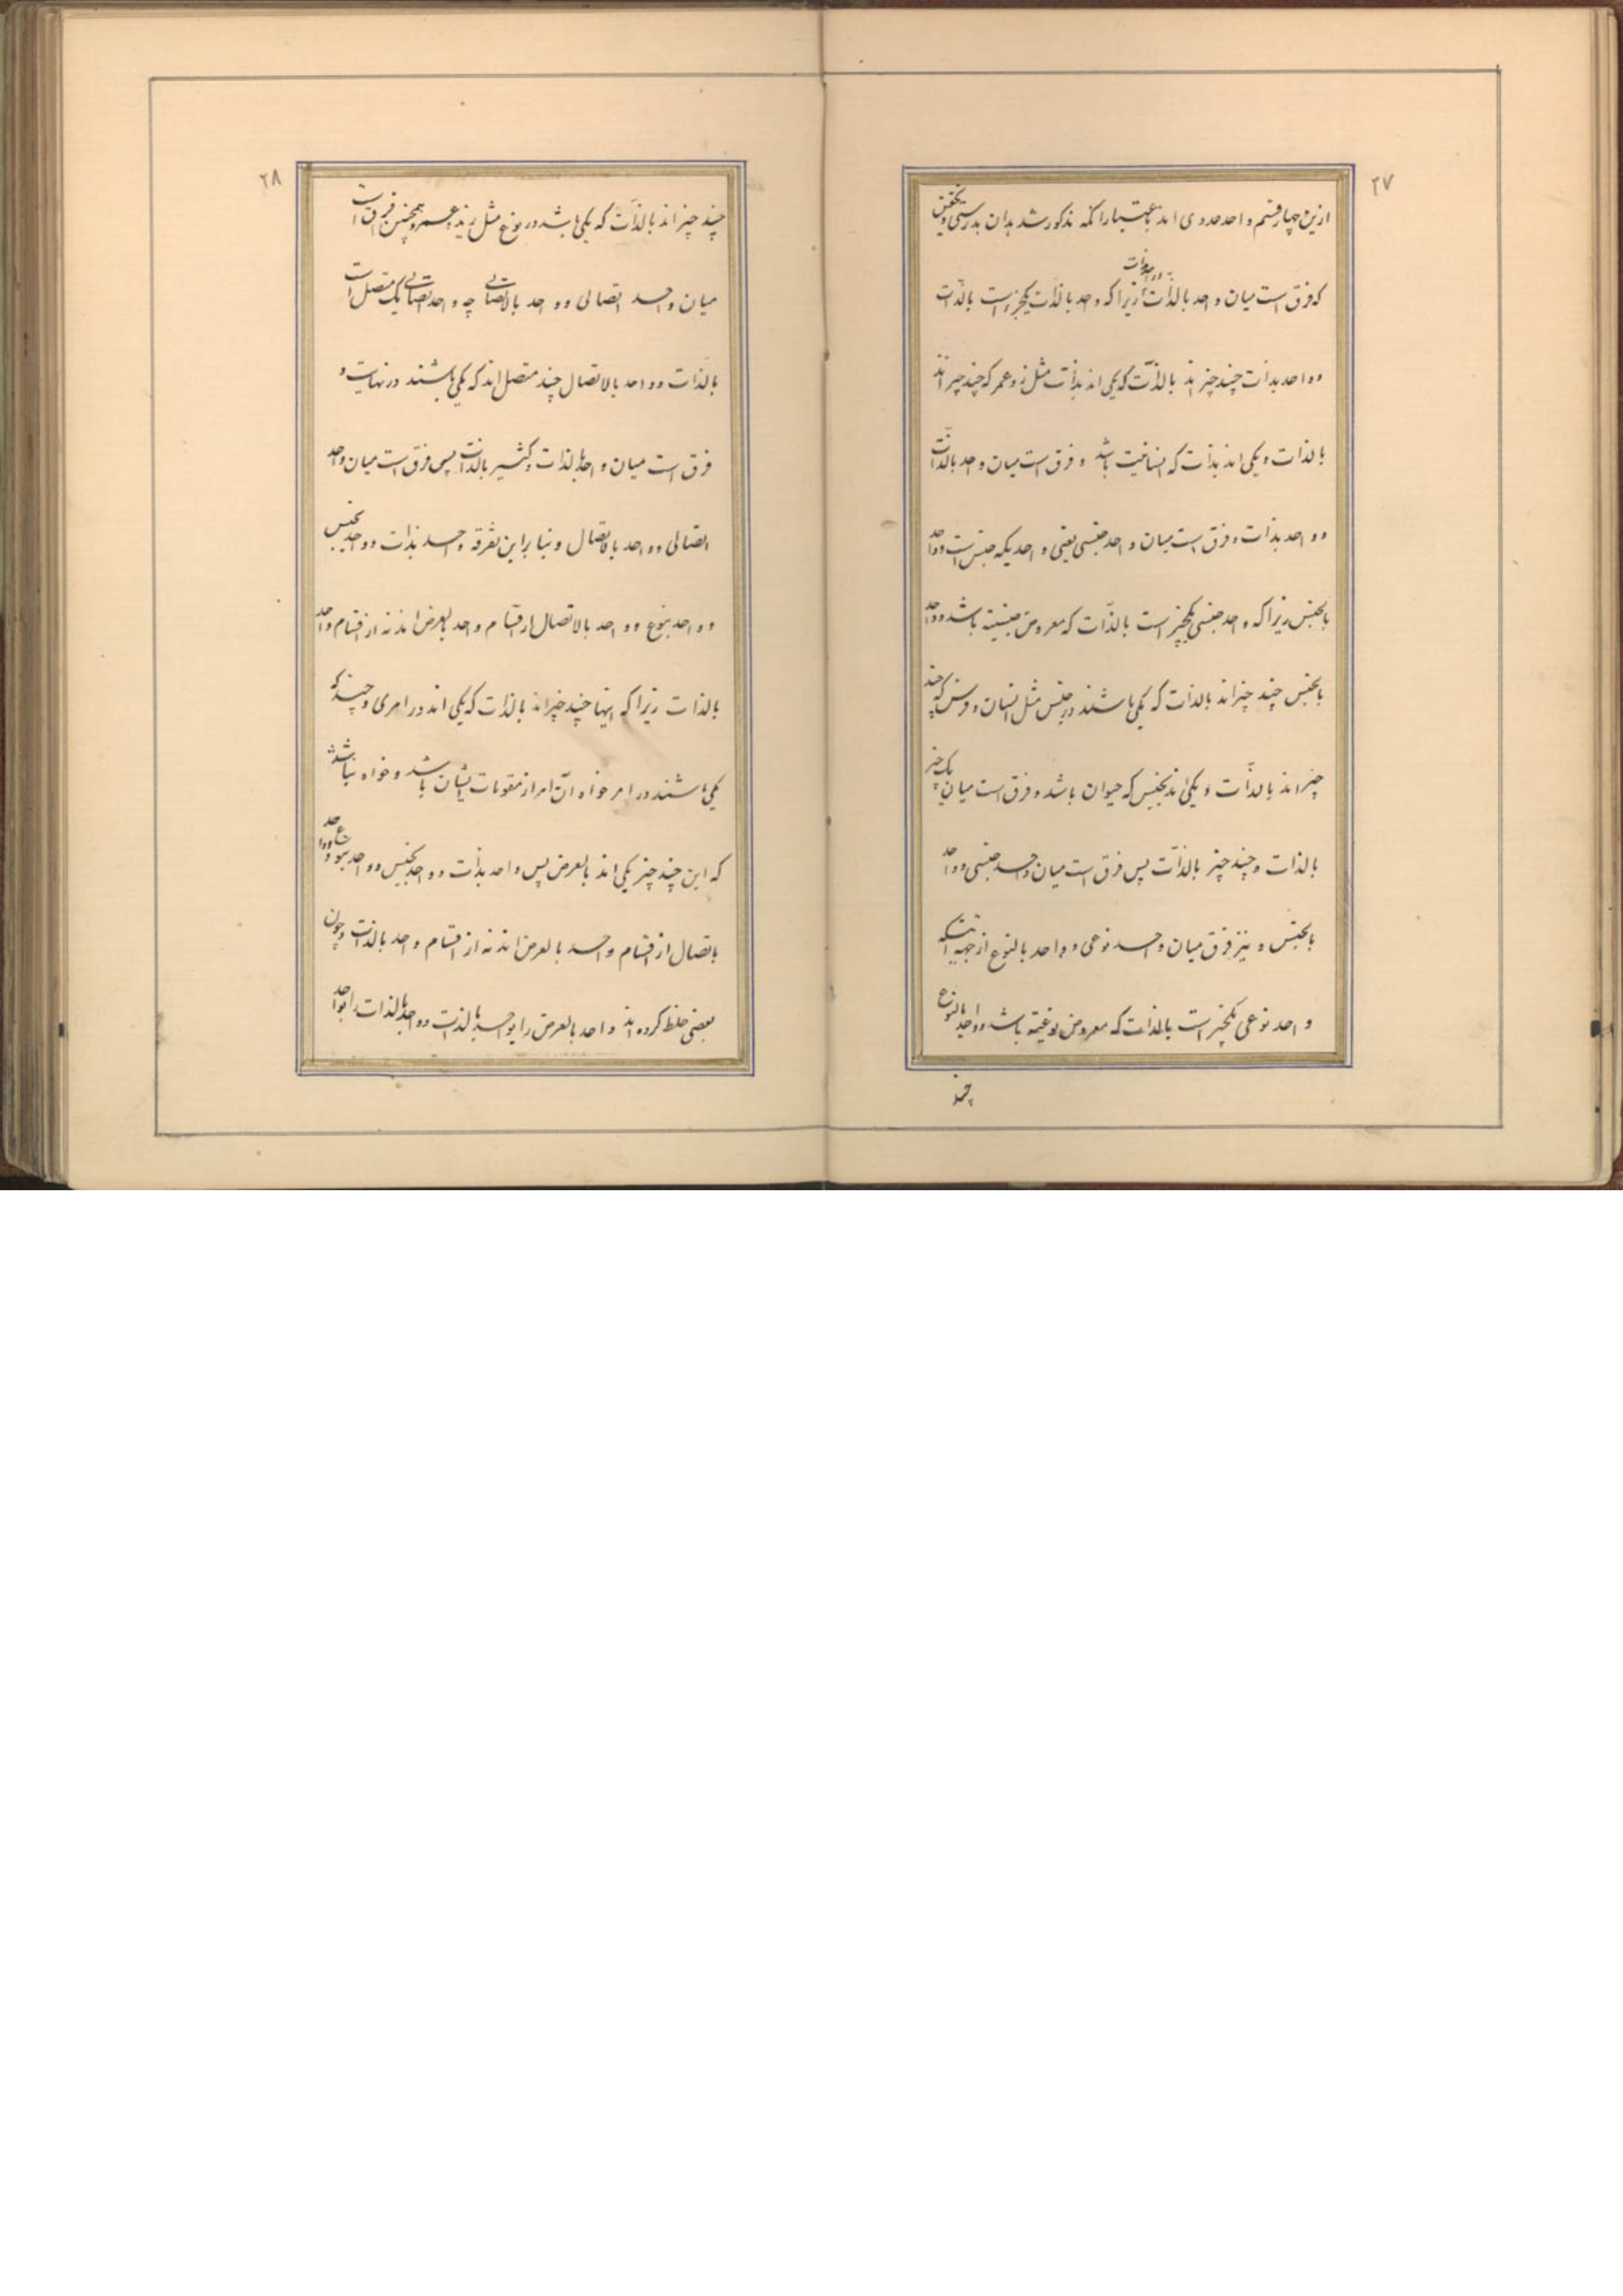 ۲۷
ازین چهار قسم واحد حدودی اند باعتبار آنکه مذکور شد بدان بدرستی و تحقیق
که فرق است میان واحد بالذات و واحد بذات زیرا که واحد بالذات یکچیز است بالذات
و واحد بذات چند چیز اند بالذات که یکی اند بذات مثل زید و عمر که چند چیز اند
بالذات و یکی اند بذات که انسانیت باشد و فرق است میان واحد بالذات
و واحد بذات و فرق است میان واحد جنسی یعنی واحدیکه جنس است و واحد
بالجنس زیرا که واحد جنسی یکچیز است بالذات که معروض جنسیته باشد و واحد
بالجنس چند چیز اند بالذات که یکی باشند در جنس مثل انسان و فرس که چند
چیز اند بالذات و یکی اند بجنس که حیوان باشد و فرق است میان یک چیز
بالذات و چند چیز بالذات پس فرق است میان واحد جنسی و واحد
بالجنس و نیز فرق میان واحد نوعی و واحد بالنوع از جهة اینست که
واحد نوعی یکچیز است بالذات که معروض نوعیته باشد و واحد بالنوع
چند
۲۸
چند چیز اند بالذات که یکی باشد در نوع مثل زید و عمرو و همچنین فرق است
میان واحد اتصالی و واحد بالاتصال چه واحد اتصالی یک متصل است
بالذات و واحد بالاتصال چند متصل اند که یکی باشند در نهایت و
فرق است میان واحد بالذات و کثیر بالذات پس فرق است میان واحد
اتصالی و واحد بالاتصال و بنا براین تفرقه واحد بذات و واحد بجنس
و واحد بنوع و واحد بالاتصال از اقسام واحد بالعرض اند نه از اقسام واحد
بالذات زیرا که اینها چند چیز اند بالذات که یکی اند در امری و چند که
یکی باشند در امر خواه آن امر از مقومات ایشان باشد و خواه نباشد
که این چند چیز یکی اند بالعرض پس واحد بذات و واحد بجنس و واحد بنوع و واحد
باتصال از اقسام واحد بالعرض اند نه از اقسام واحد بالذات و چون
بعضی خلط کرده اند واحد بالعرض را بواحد بالذات و واحد بالذات را بواحد